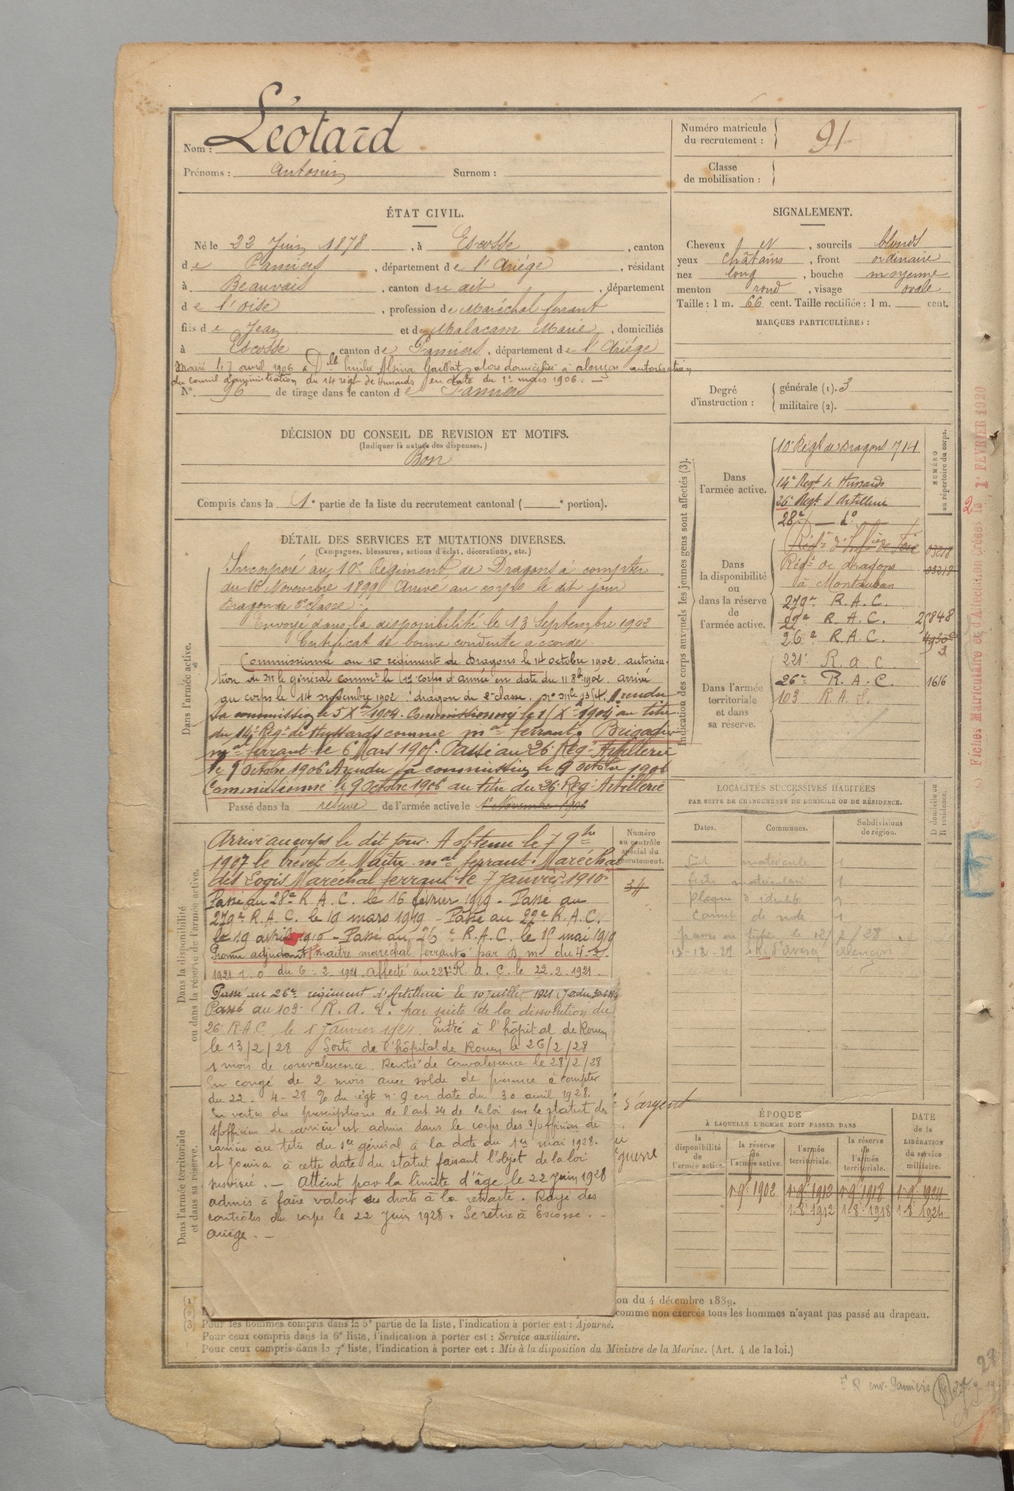 Nom : Léotard
Prénoms : Antonin Surnom :
Numéro matricule du recrutement : 91
Classe de mobilisation :
ÉTAT CIVIL.
Né le 22 Juin 1878, à Escosse, canton
de Pamiers, département de l'Ariège, résidant
à Beauvais, canton du dit, département
de l'Oise, profession de Maréchal ferrant
fils de Jean et de Malacam Marie, domiciliés
à Escosse, canton de Pamiers, département de l'Ariège
Marié le 7 avril 1906 à Dlle Emilie Alsina Gaillat, alors domiciliée à Alençon autorisation
du conseil d'administration du 14 régt de hussards en date du 1er mars 1906. —
N° 96 de tirage dans le canton de Pamiers
SIGNALEMENT.
Cheveux et, sourcils blonds
yeux châtains, front ordinaire
nez long, bouche moyenne
menton rond, visage ovale.
Taille : 1 m. 66 cent. Taille rectifiée : 1 m. cent.
MARQUES PARTICULIÈRES :
Degré d'instruction : générale (1). 3
militaire (2).
DÉCISION DU CONSEIL DE REVISION ET MOTIFS.
(Indiquer la nature des dispenses.)
Bon
Compris dans la 1e partie de la liste du recrutement cantonal ( e portion).
DÉTAIL DES SERVICES ET MUTATIONS DIVERSES.
(Campagnes, blessures, actions d'éclat, décorations, etc.)
Dans l'armée active.
Incorporé au 10e Régiment de Dragons à compter
du 16 Novembre 1899 Arrivé au corps le dit jour
Dragon de 2e classe.
Envoyé dans la disponibilité le 13 Septembre 1902
Certificat de bonne conduite accordé
Commissionné au 10 régiment de Dragons le 14 octobre 1902. autorisa-
tion de Mr le général Commt le corps d'Armée en date du 11 8bre 1902. arrivé
au corps le 14 novembre 1902 dragon de 2e classe, A rendu
sa commission le 5 Xbre 1904. Commissionné le Xbre 1904 au titre
du 14e Régt de Hussards comme mal ferrant. Brigadier
mal ferrant le 6 Mars 1905. Passé au 26 Rég. Artillerie
le 9 Octobre 1906 A rendu sa commission le 9 octobre 1906
Commissionné le 9 octobre 1906 au titre du 26 Rég. Artillerie
Passé dans la réserve de l'armée active le 1er Novembre 1902
Indication des corps auxquels les jeunes gens sont affectés (3).
NUMÉRO au répertoire du corps.
Dans l'armée active.
10e Régt de Dragons 714
14e Regt de Hussards
26e Regt d'Artillerie
28e — do
Dans la disponibilité ou dans la réserve de l'armée active.
Régt de dragons
à Montauban
279e R.A.C.
22e R.A.C. 25848
26e R.A.C.
Dans l'armée territoriale et dans sa réserve.
221e R.A.C.
26e R.A.C. 1616
103 R.A.L.
Dans la disponibilité ou dans la réserve de l'armée active.
Numéro au contrôle spécial du recrutement.
34
Arrivé au corps le dit jour. A obtenu le 7 9bre
1907 le brevet de Maître mal ferrant. Maréchal
des Logis Maréchal ferrant le 7 janvier 1910.
Passé au 28e R.A.C. le 16 février 1919 - Passé au
279e R.A.C. le 10 mars 1919 - Passé au 22e R.A.C.
le 19 avril 1919 - Passé au 26e R.A.C. le 1er mai 1919
Promu adjudant maître maréchal ferrant par D. m. du 4-2-
1921 J.O. du 6-2-1921. Affecté au 221e R.A.C. le 22.2.1921
Passé au 26e régiment d'Artillerie le 10 juillet 1921
Passé au 103e R.A.L. par suite de la dissolution du
26 R.A.C. le 1 Janvier 1924. Entré à l'hôpital de Rouen
le 13/2/28. Sorti de l'hôpital de Rouen le 26/2/28
1 mois de convalescence. Rentré de Convalescence le 28/2/28
En congé de 2 mois avec solde de présence à compter
du 22-4-28 du régt n° 9 en date du 30 avril 1928.
En vertu des prescriptions de l'art 24 de la loi sur le statut des
S/officiers de carrière est admis dans le corps des S/officiers de
carrière au titre du 1er général à la date du 1er mai 1928.
et jouira à cette date du statut faisant l'objet de la loi
susvisée. — Atteint par la limite d'âge le 22 juin 1928
admis à faire valoir ses droits à la retraite. Rayé des
contrôles du corps le 22 juin 1928. Se retire à Escosse. -
Ariège. —
Dans l'armée territoriale et dans sa réserve.
d'argent
LOCALITÉS SUCCESSIVES HABITÉES
PAR SUITE DE CHANGEMENTS DE DOMICILE OU DE RÉSIDENCE.
Dates. Communes. Subdivisions de région. D. domicile ou R. résidence.
matricule 1
1
plaque d'identité
ÉPOQUE
À LAQUELLE L'HOMME DOIT PASSER DANS
la disponibilité de l'armée active.
la réserve de l'armée active.
l'armée territoriale.
la réserve de l'armée territoriale.
DATE de la LIBÉRATION du service militaire.
1-9-1902 1-9-1912 1-9-1918 1-9-1924
1-8-1912 1-8-1918 1-8-1924
on du 4 décembre 1889.
comme non exercés tous les hommes n'ayant pas passé au drapeau.
(3) Pour les hommes compris dans la 5e partie de la liste, l'indication à porter est : Ajourné.
Pour ceux compris dans la 6e liste, l'indication à porter est : Service auxiliaire.
Pour ceux compris dans la 7e liste, l'indication à porter est : Mis à la disposition du Ministre de la Marine. (Art. 4 de la loi.)